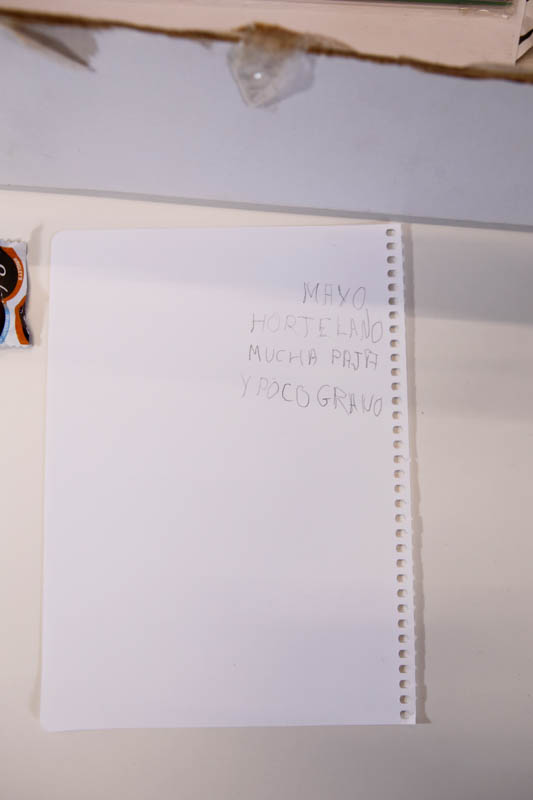 MAYO
HORTELANO
MUCHA PAJA
Y POCO GRANO